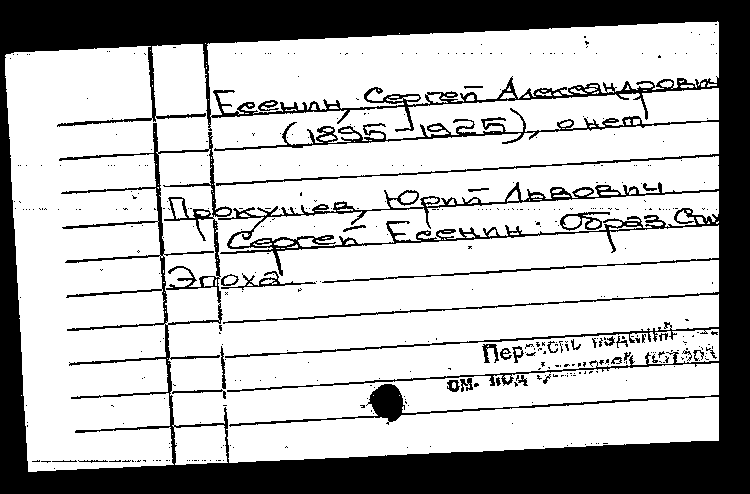 Есенин, Сергей Александрович
(1895-1925), о нем
Прокушев, Юрий Львович
Сергей Есенин: Образ. Стих
Эпоха
Перечень изданий
см. под фамилией автора